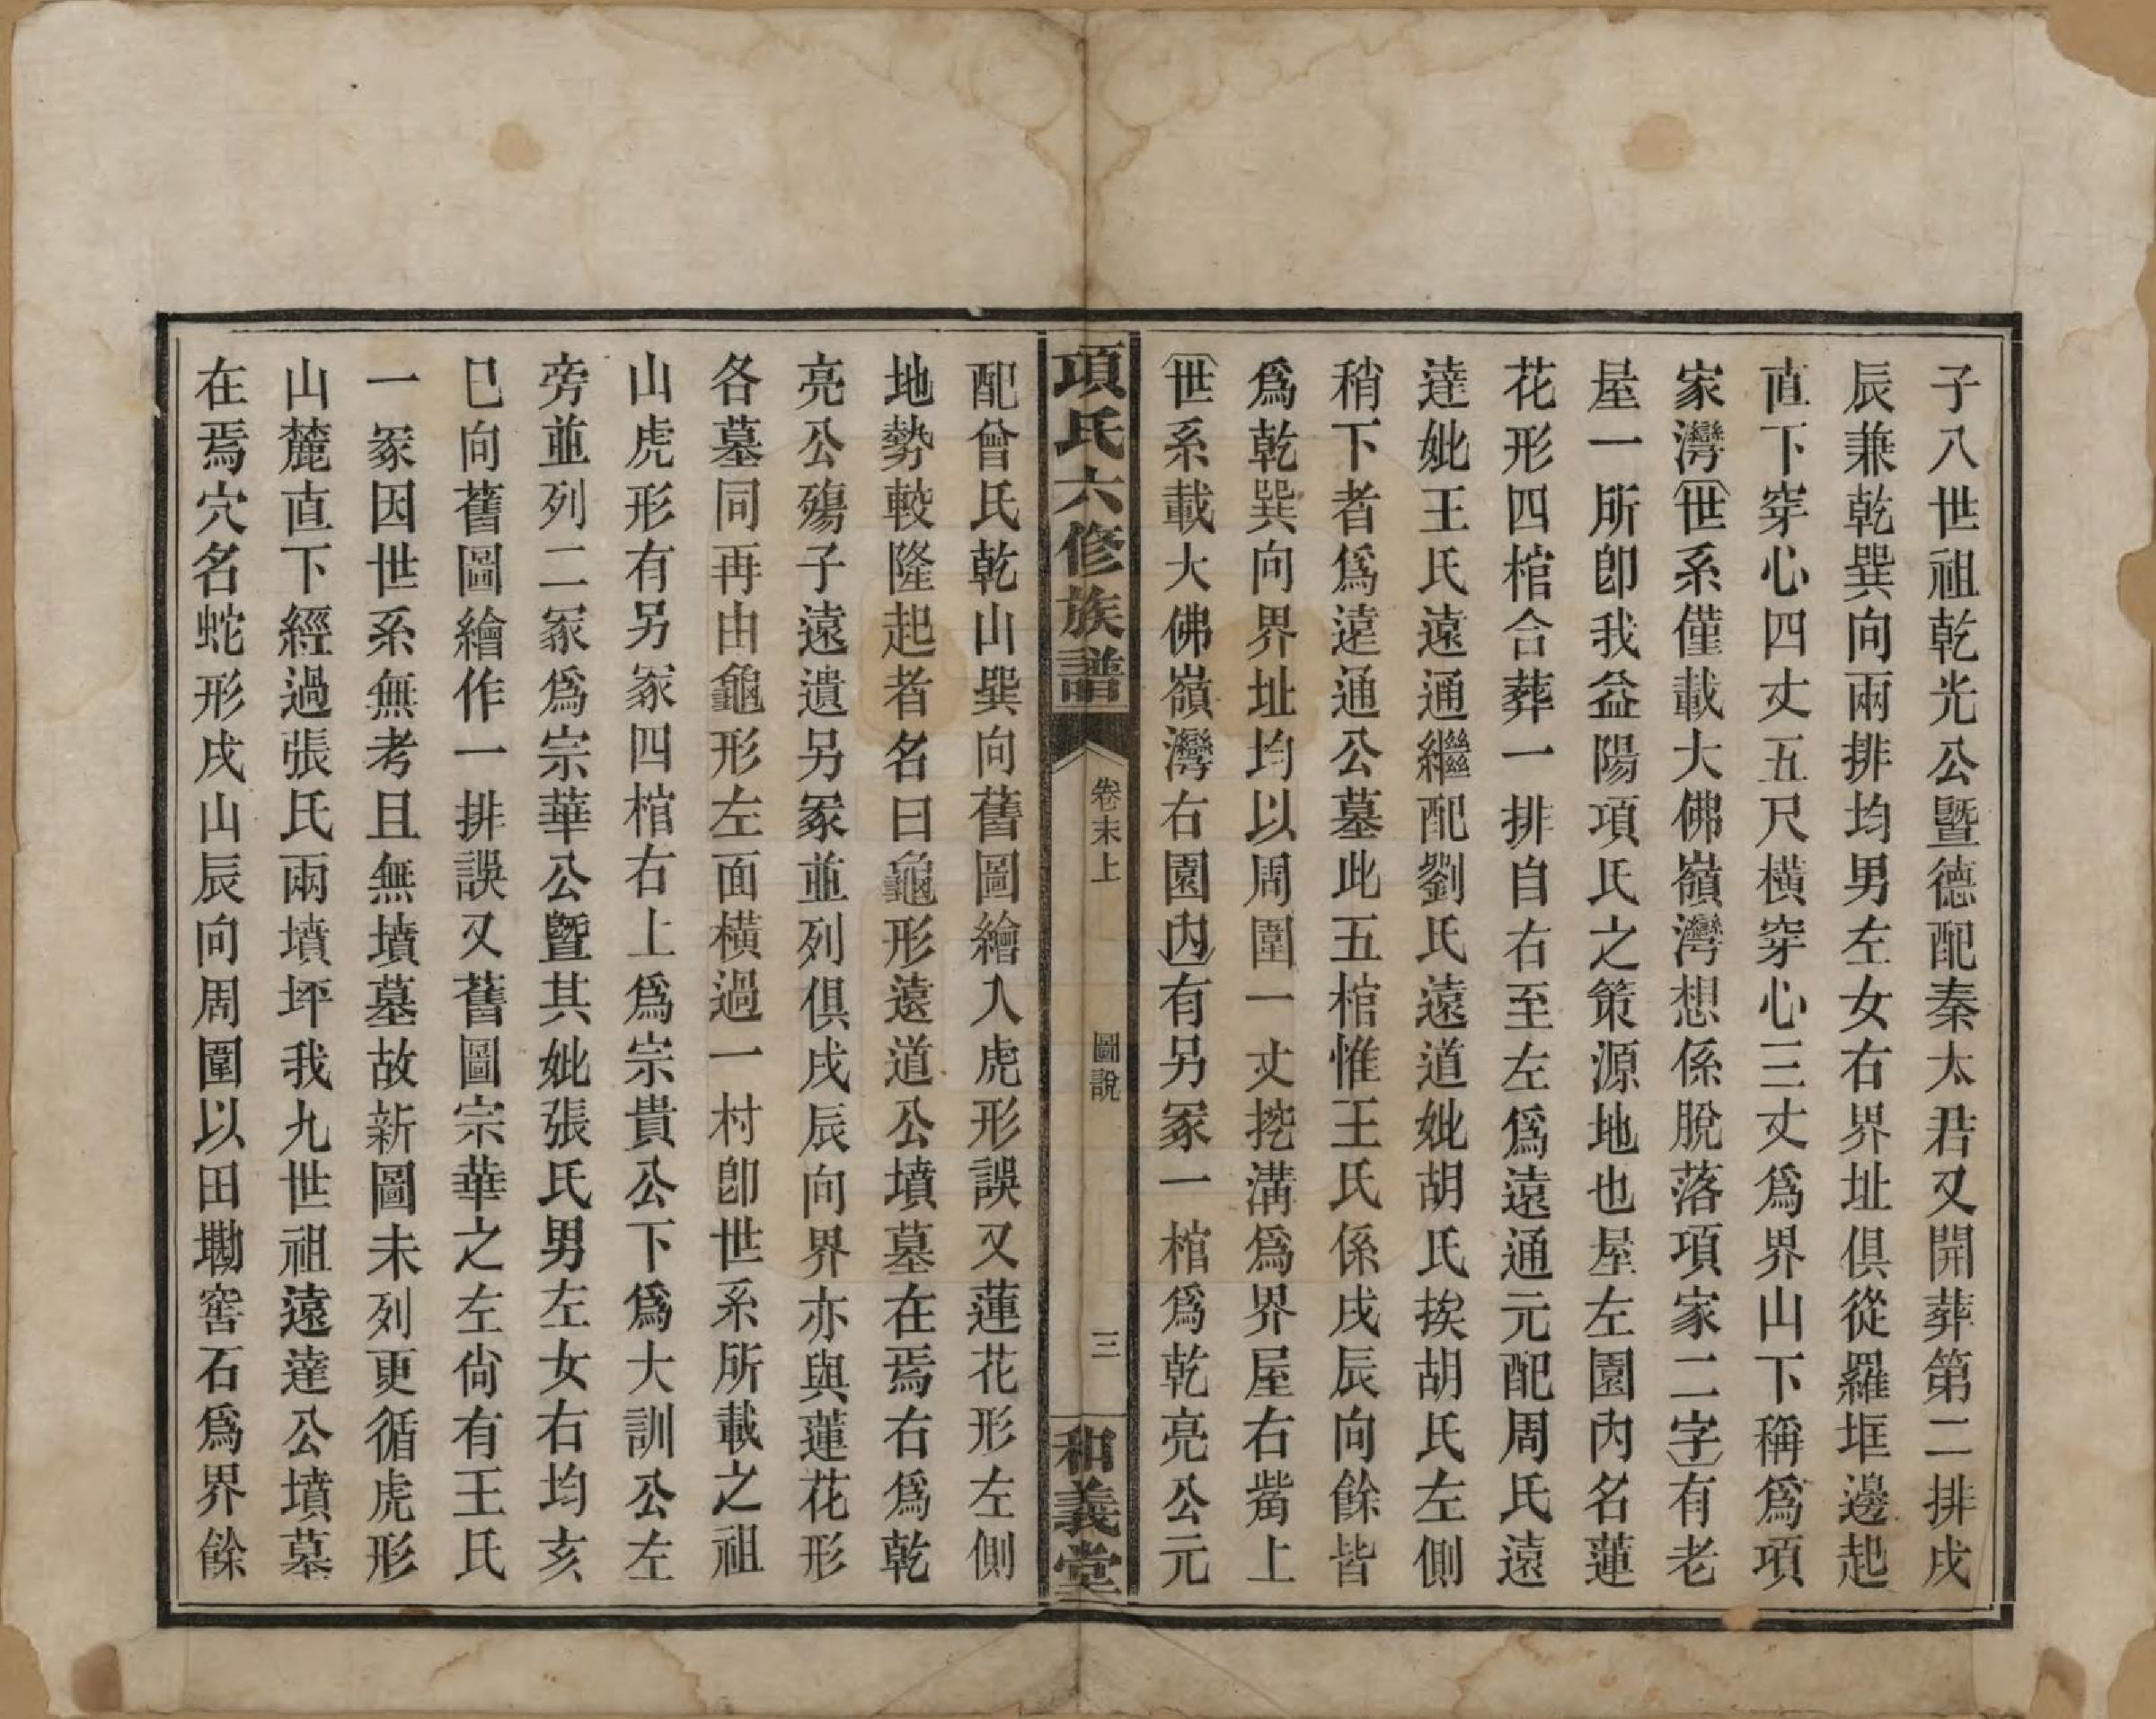 子八世祖乾光公暨德配秦太君又開葬第二排戌
辰兼乾巽向兩排均男左女右界址俱從羅框邊起
直下穿心四丈五尺橫穿心三丈爲界山下稱爲項
家灣(世系僅載大佛嶺灣想係脫落項家二字)有老
屋一所卽我益陽項氏之策源地也屋左園內名蓮
花形四棺合葬一排自右至左爲遠通元配周氏遠
達妣王氏遠通繼配劉氏遠道妣胡氏挨胡氏左側
稍下者爲遠通公墓此五棺惟王氏係戌辰向餘皆
爲乾巽向界址均以周圍一丈挖溝爲界屋右嘴上
(世系載大佛嶺灣右園內)有另冢一棺爲乾亮公元
項氏六修族譜
卷末上
圖說
三
和義堂
配曾氏乾山巽向舊圖繪入虎形誤又蓮花形左側
地勢較隆起者名曰龜形遠道公墳墓在焉右爲乾
亮公殤子遠遺另冢並列俱戌辰向界亦與蓮花形
各墓同再由龜形左面橫過一村卽世系所載之祖
山虎形有另冢四棺右上爲宗貴公下爲大訓公左
旁並列二冢爲宗華公暨其妣張氏男左女右均亥
巳向舊圖繪作一排誤又舊圖宗華之左尙有王氏
一冢因世系無考且無墳墓故新圖未列更循虎形
山麓直下經過張氏兩墳坪我九世祖遠達公墳墓
在焉穴名蛇形戌山辰向周圍以田墈窖石爲界餘